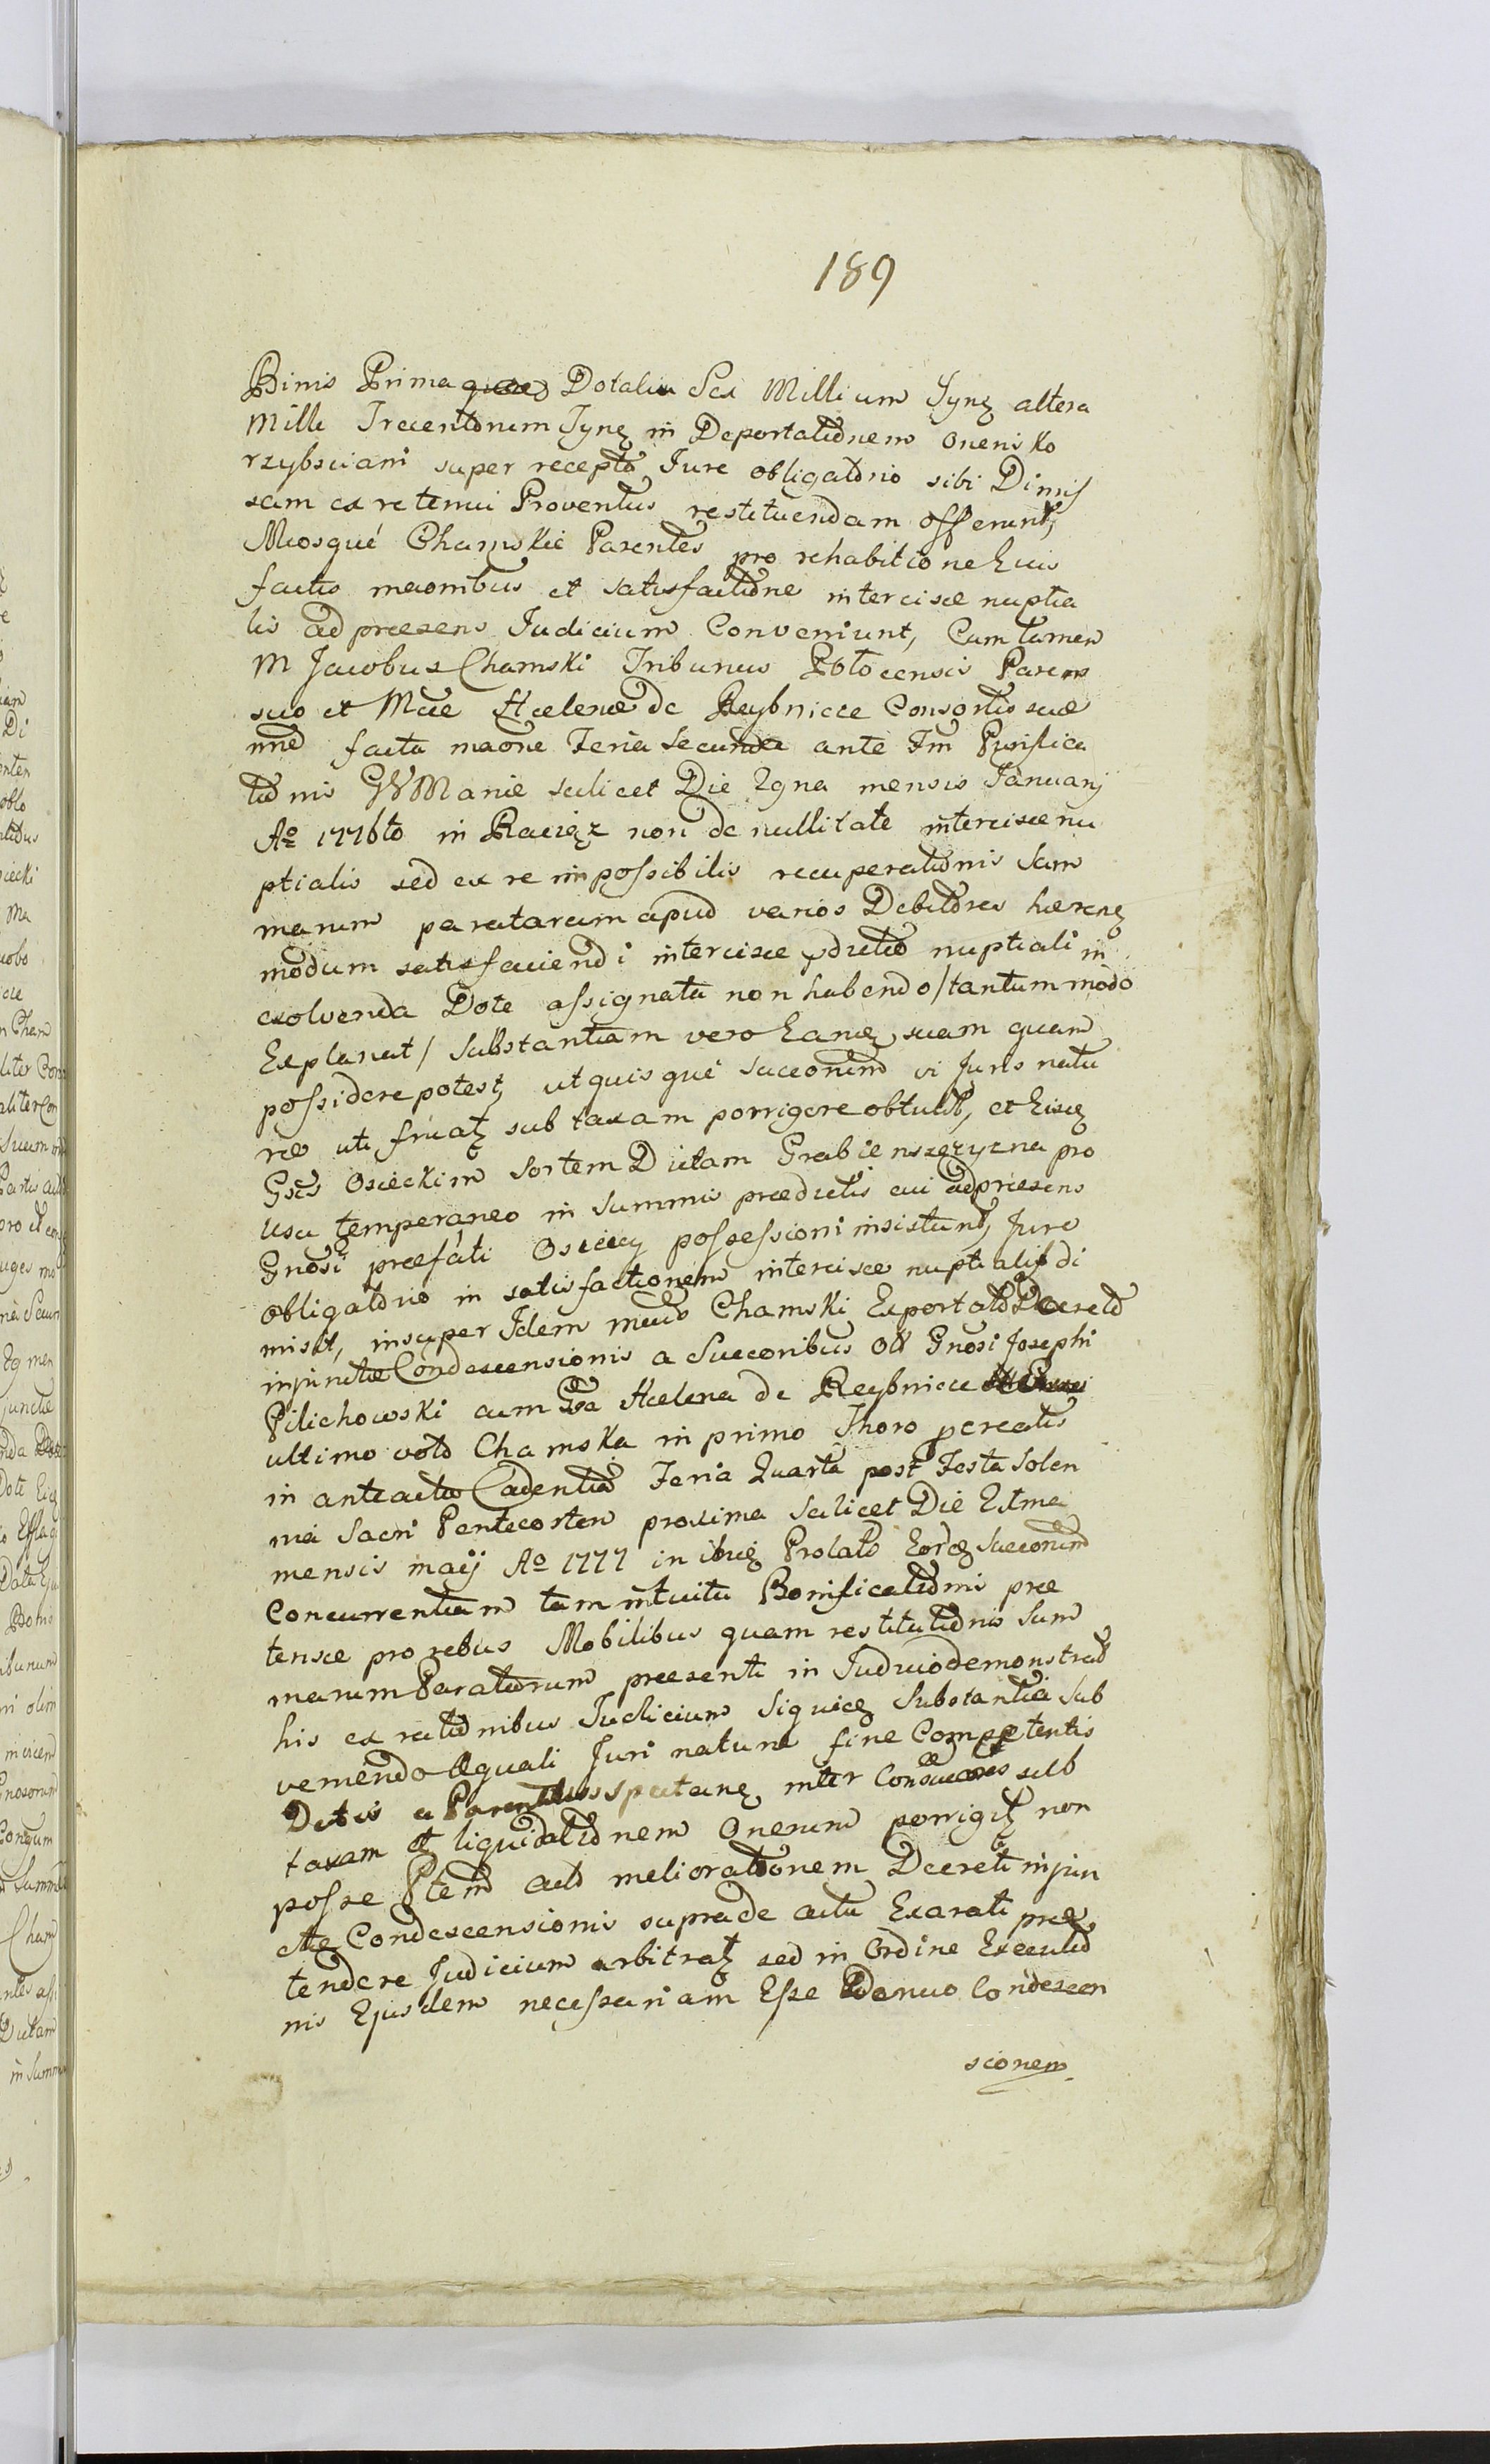 189
Binis Prima quae Dotalis Sex Millium Tynf altera
Mille Trecentorum Tynf in Deportationem oneris Ko
rzybsciani super recepto Jure obligatorio sibi Dimis
sam ex retenui Proventus restituendam offerunt,
Mcosque Chamskie Parentes pro rehabitione Eius
factis maonibus et satisfactione intercisae nuptia
lis ad praesens Judicium Conveniunt, Cum tamen
M Jacobus Chamski Tribunus Plocensis Parens
suo et Mcae Helenae de Reybnicce Consortis suae
nne facta maone Feria Secunda ante Fm Purifica
tionis BVMariae scilicet Die 29na mensis Januarij
Ao 1776to in Raciąz non de nullitate intercisae nu
ptialis sed ex re impossibilis recuperationis Sum
marum paratarum apud varios Debitores haerenz
modum satisfaciendi intercisae pdictae nuptiali in
exolvenda Dote assignata non habendo /tantummodo
Explanat/ Substantiam vero Eanz suam quam
possidere potest, ut quisque succonum vi Juris natu
rae uti fruatz sub taxam porrigere obtulit, et Eisz
Gsis Osieckim Sortem Dictam Grabienszczyzna pro
usu temperaneo in Summis praedictis cui ad praesens
Gnosi praefati Osieccy possessioni insistunt, Jure
obligatorio in satisfactionem intercisae nuptialis di
misit, insuper Idem mcus Chamski Exportato Decreto
injunctae Condescensionis a Succoribus Olt Gnosi Josephi
Pilichowski cum Gsa Helena de Reybnicce
ultimo voto Chamska in primo Thoro pcreatis
in anteactu Cadentia Feria Quarta post Festa Solen
nia Sacri Pentecosten proxima Scilicet Die 21ma
mensis maij Ao 1777 in Prolato Eordz Succonum
Concurrentiam tam intuitu Bonificationis prae
tensae pro rebus Mobilibus quam restitutionis Sum
marum Paratarum praesenti in Judicio demonstrat
his ex rationibus Judicium siquidz Substantia Sub
veniendo Aequali Juri natura fine Competentis
Dotis a Parentibus spectanz inter Consuccores sub
taxam et liquidationem Onerum porrigitz non
posse Ptem acto meliorationem Decreti injun
ctae Condescensionis supra de actu Exarati prae
tendere Judicium arbitratz sed in Ordine Executio
nis Ejusdem necessariam Esse Denuo Condescen
sionem